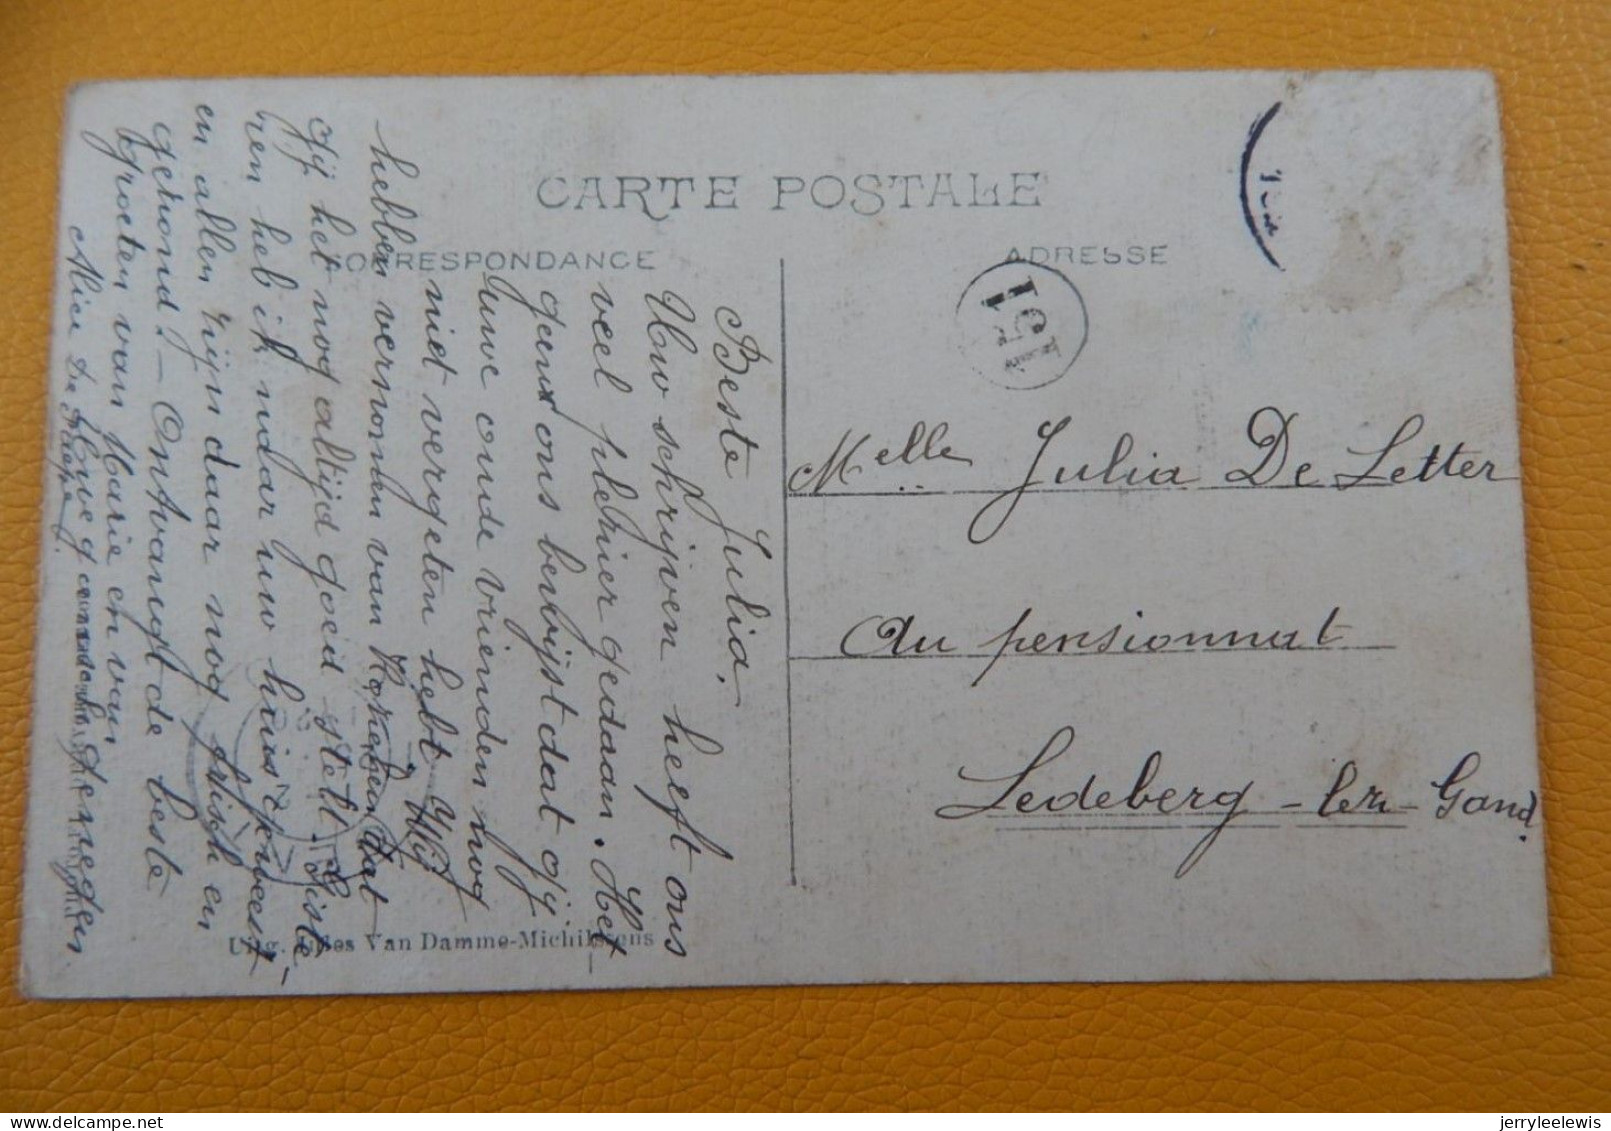 CARTE POSTALE
CORRESPONDANCE
ADRESSE
151
Beste Julia,
Uw schrijven heeft ons
veel plezier gedaan. Het
ons bewijst dat gij
uwe oude vrienden nog
niet vergeten hebt. Wij
hebben vernomen van dat
gij het nog altijd goed stelt. Giste-
ren heb ik naar uw huis geweest
en allen zijn daar nog frisch en
gezond. - Ontvangt de beste
groeten van Marie en van
Uwe
Alice De
Melle Julia De Letter
Au pensionnat
Ledeberg-lez-Gand.
Uitg. Jules Van Damme-Michilssens
jerryleelewis